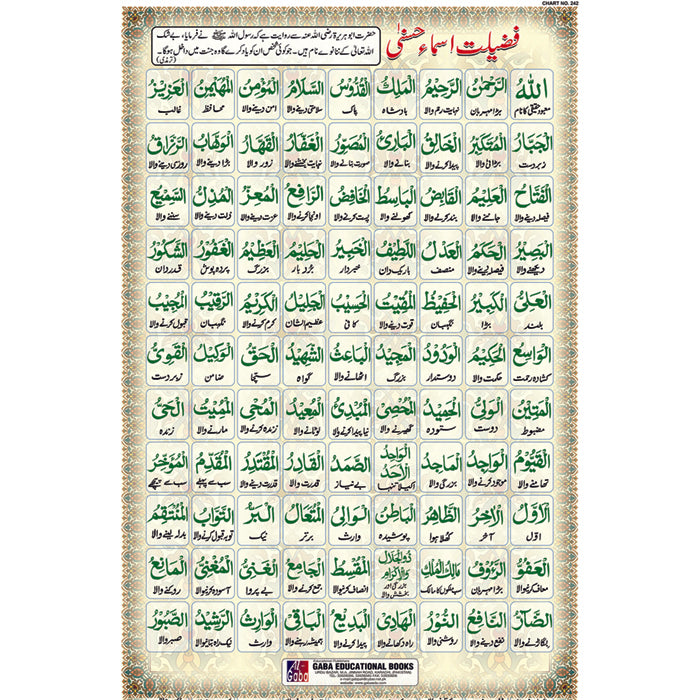 CHART NO. 242
فضیلت اسماء حسنٰی
حضرت ابوہریرۃ رضی اللہ عنہ سے روایت ہے کہ رسول اللہ ﷺ نے فرمایا، بے شک
اللہ تعالٰی کے ننانوے نام ہیں۔ جو کوئی شخص ان کو یاد کرے گا وہ جنت میں داخل ہوگا۔ (ترمذی)
اَللهُ الرَّحْمٰنُ الرَّحِيْمُ الْمَلِكُ الْقُدُّوْسُ السَّلَامُ الْمُؤْمِنُ الْمُهَيْمِنُ الْعَزِيْزُ
معبود حقیقی کا نام بڑا مہربان نہایت رحم والا بادشاہ پاک سلامتی دینے والا امن دینے والا محافظ غالب
الْجَبَّارُ الْمُتَكَبِّرُ الْخَالِقُ الْبَارِئُ الْمُصَوِّرُ الْغَفَّارُ الْقَهَّارُ الْوَهَّابُ الرَّزَّاقُ
زبردست بڑائی والا پیدا کرنے والا بنانے والا صورت بنانے والا نہایت بخشنے والا زور والا بڑا دینے والا روزی دینے والا
الْفَتَّاحُ الْعَلِيْمُ الْقَابِضُ الْبَاسِطُ الْخَافِضُ الرَّافِعُ الْمُعِزُّ الْمُذِلُّ السَّمِيْعُ
فیصلہ دینے والا جاننے والا بند کرنے والا کھولنے والا پست کرنے والا اونچا کرنے والا عزت دینے والا ذلت دینے والا سننے والا
الْبَصِيْرُ الْحَكَمُ الْعَدْلُ اللَّطِيْفُ الْخَبِيْرُ الْحَلِيْمُ الْعَظِيْمُ الْغَفُوْرُ الشَّكُوْرُ
دیکھنے والا فیصلہ دینے والا منصف باریک دان خبردار بُردبار بزرگ پردہ پوش قدردان
الْعَلِيُّ الْكَبِيْرُ الْحَفِيْظُ الْمُقِيْتُ الْحَسِيْبُ الْجَلِيْلُ الْكَرِيْمُ الرَّقِيْبُ الْمُجِيْبُ
بلند بڑا نگہبان قوت دینے والا کافی عظیم الشان کرم کرنے والا نگہبان قبول کرنے والا
الْوَاسِعُ الْحَكِيْمُ الْوَدُوْدُ الْمَجِيْدُ الْبَاعِثُ الشَّهِيْدُ الْحَقُّ الْوَكِيْلُ الْقَوِيُّ
کشادہ رحمت حکمت والا دوستدار بزرگ اٹھانے والا گواہ سچا ضامن زبردست
الْمَتِيْنُ الْوَلِيُّ الْحَمِيْدُ الْمُحْصِيْ الْمُبْدِئُ الْمُعِيْدُ الْمُحْيِ الْمُمِيْتُ الْحَيُّ
مضبوط دوست ستودہ گھیرنے والا نیا پیدا کرنے والا لوٹانے والا زندہ کرنے والا مارنے والا زندہ
الْقَيُّوْمُ الْوَاجِدُ الْمَاجِدُ الْوَاحِدُ الْاَحَدُ الصَّمَدُ الْقَادِرُ الْمُقْتَدِرُ الْمُقَدِّمُ الْمُؤَخِّرُ
تھامنے والا موجود کرنے والا بزرگی والا اکیلا تنہا بے نیاز قدرت والا قدرت دینے والا سب سے پہلے سب سے پیچھے
الْاَوَّلُ الْاٰخِرُ الظَّاهِرُ الْبَاطِنُ الْوَالِيْ الْمُتَعَالُ الْبَرُّ التَّوَّابُ الْمُنْتَقِمُ
اوّل آخر کھلا ہوا پوشیدہ وارث برتر نیک توبہ قبول کرنے والا بدلہ لینے والا
الْعَفُوُّ الرَّؤُوْفُ مَالِكُ الْمُلْكِ ذُوالْجَلَالِ وَالْاِكْرَامِ الْمُقْسِطُ الْجَامِعُ الْغَنِيُّ الْمُغْنِيْ الْمَانِعُ
معاف کرنیوالا بڑا مہربان سب ملکوں کا مالک بزرگی اور بخشش والا انصاف کرنیوالا جمع کرنے والا بے پروا آسودہ کرنیوالا روکنے والا
الضَّآرُّ النَّافِعُ النُّوْرُ الْهَادِيْ الْبَدِيْعُ الْبَاقِيْ الْوَارِثُ الرَّشِيْدُ الصَّبُوْرُ
بگاڑنے والا نفع دینے والا روشنی والا راہ دکھانے والا پیدا کرنے والا ہمیشہ رہنے والا وارث نیک راہ بتانیوالا صبر والا
Gaba
GABA EDUCATIONAL BOOKS